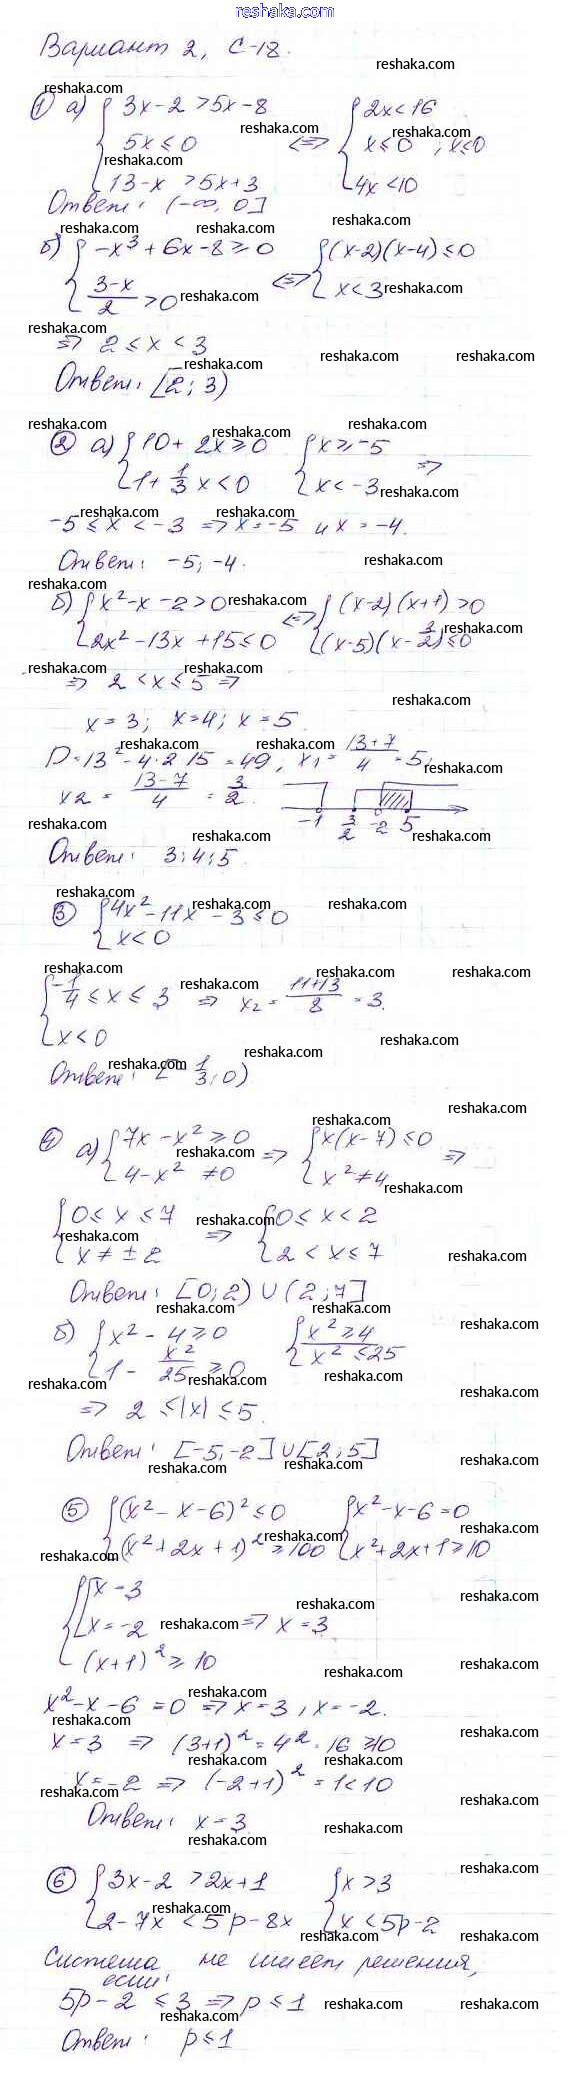 reshaka.com
Вариант 2, С-18.
① а) { 3x-2 > 5x-8
5x ≤ 0
13-x > 5x+3
<=> { 2x < 16
x ≤ 0 ; x ≤ 0
4x < 10
Ответ: (-∞, 0]
б) { -x³ + 6x - 8 ≥ 0
(3-x)/2 > 0
<=> { (x-2)(x-4) ≤ 0
x < 3
=> 2 ≤ x < 3
Ответ: [2; 3)
② а) { 10 + 2x ≥ 0
1 + 1/3 x < 0
{ x ≥ -5
x < -3
=>
-5 ≤ x < -3 => x = -5 и x = -4.
Ответ: -5; -4.
б) { x² - x - 2 > 0
2x² - 13x + 15 ≤ 0
<=> { (x-2)(x+1) > 0
(x-5)(x-3/2) ≤ 0
=> 2 < x ≤ 5 =>
x = 3; x = 4; x = 5
D = 13² - 4·2 15 = 49, x₁ = (13+7)/4 = 5,
x₂ = (13-7)/4 = 3/2.
-1 3/2 -2 5
Ответ: 3; 4; 5
③ { 4x² - 11x - 3 ≤ 0
x < 0
{ -1/4 ≤ x ≤ 3 => x₂ = (11+13)/8 = 3.
x < 0
Ответ: [-1/3; 0)
④ а) { 7x - x² ≥ 0
4 - x² ≠ 0
=> { x(x-7) ≤ 0
x² ≠ 4
=>
{ 0 ≤ x ≤ 7
x ≠ ± 2
=> { 0 ≤ x < 2
2 < x ≤ 7
Ответ: [0; 2) ∪ (2; 7]
б) { x² - 4 ≥ 0
1 - x²/25 ≥ 0
{ x² ≥ 4
x² ≤ 25
=> 2 ≤ |x| ≤ 5.
Ответ: [-5, -2] ∪ [2; 5]
⑤ { (x² - x - 6)² ≤ 0
(x² + 2x + 1)² ≥ 100
{ x² - x - 6 = 0
x² + 2x + 1 ≥ 10
{ [ x = 3
x = -2
(x+1)² ≥ 10
=> x = 3
x² - x - 6 = 0 => x = 3, x = -2.
x = 3 => (3+1)² = 4² = 16 ≥ 10
x = -2 => (-2+1)² = 1 < 10
Ответ: x = 3
⑥ { 3x-2 > 2x+1
2-7x < 5p-8x
{ x > 3
x < 5p-2
Система не имеет решения,
если:
5p - 2 ≤ 3 => p ≤ 1
Ответ: p ≤ 1